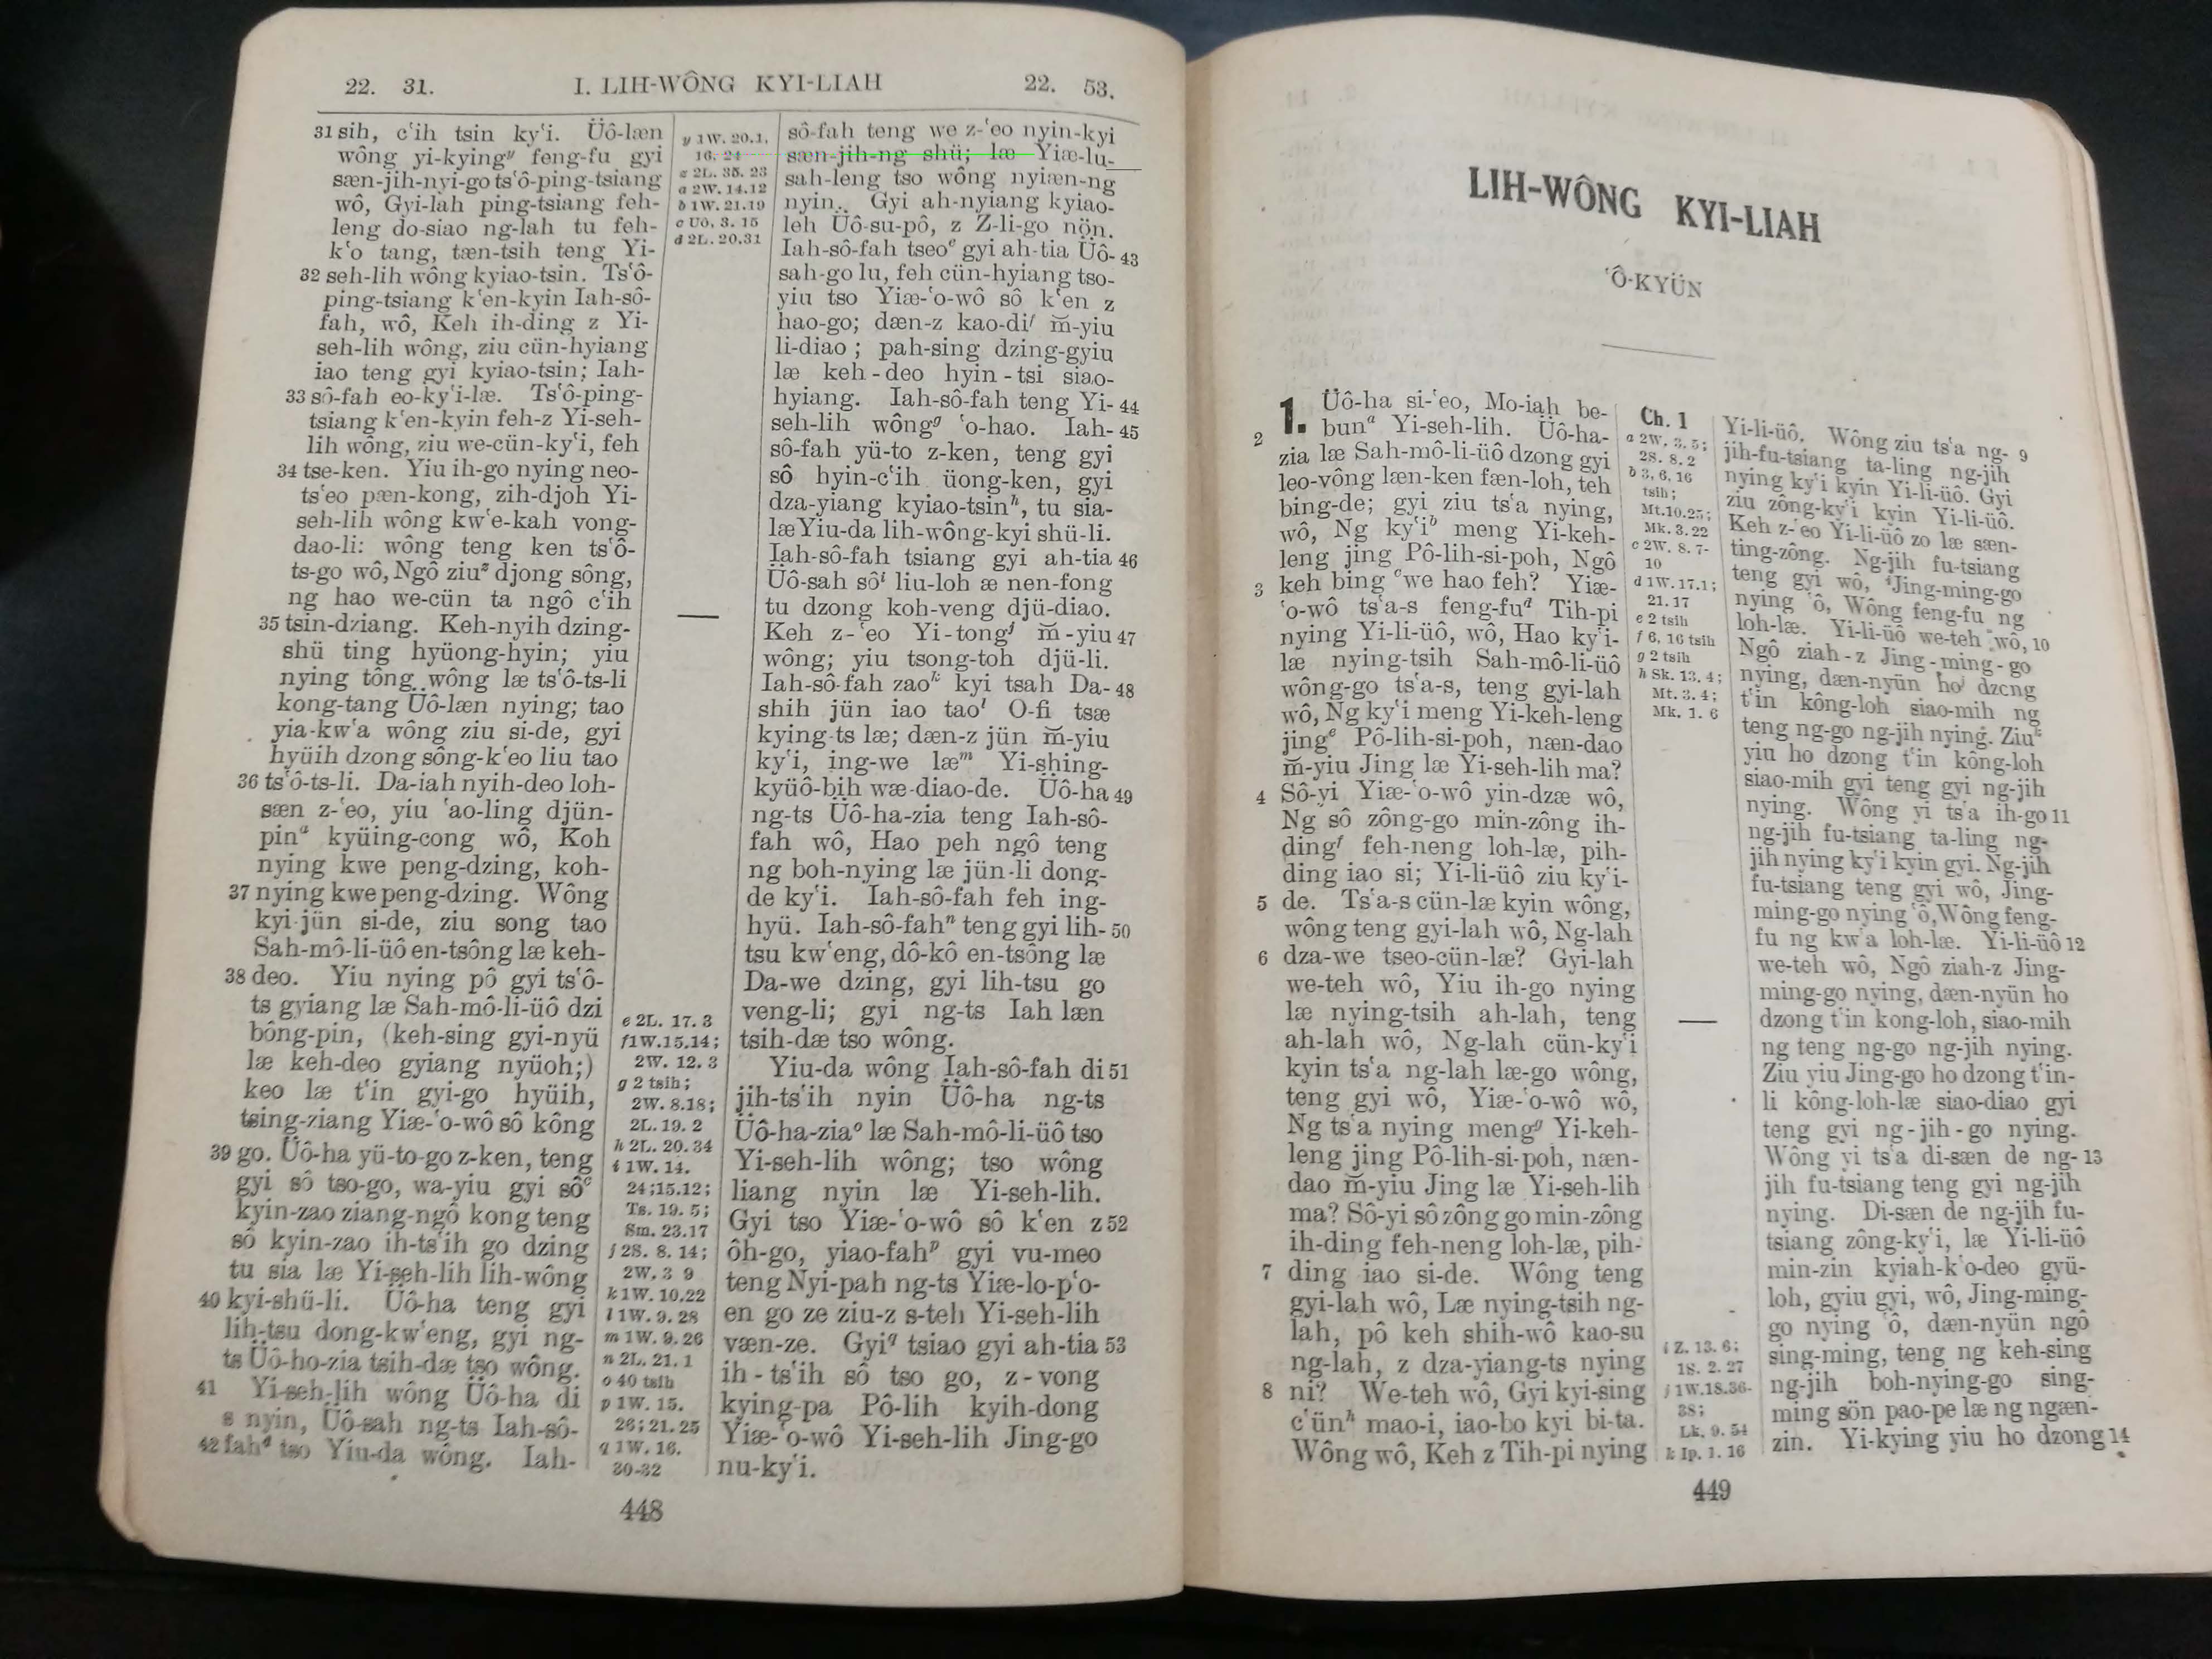 22. 31. I. LIH-WÔNG KYI-LIAH 22. 53.
31 sih, c‘ih tsin ky‘i. Üô-læn
wông yi-kyingʸ feng-fu gyi
sæn-jih-nyi-go ts‘ô-ping-tsiang
wô, Gyi-lah ping-tsiang feh-
leng do-siao ng-lah tu feh-
k‘o tang, tæn-tsih teng Yi-
32 seh-lih wông kyiao-tsin. Ts‘ô-
ping-tsiang k‘en-kyin Iah-sô-
fah, wô, Keh ih-ding z Yi-
seh-lih wông, ziu cün-hyiang
iao teng gyi kyiao-tsin; Iah-
33 sô-fah eo-ky‘i-læ. Ts‘ô-ping-
tsiang k‘en-kyin feh-z Yi-seh-
lih wông, ziu we-cün-ky‘i, feh
34 tse-ken. Yiu ih-go nying neo-
ts‘eo pæn-kong, zih-djoh Yi-
seh-lih wông kw‘e-kah vong-
dao-li: wông teng ken ts‘ô-
ts-go wô, Ngô ziuᶻ djong sông,
ng hao we-cün ta ngô c‘ih
35 tsin-dziang. Keh-nyih dzing-
shü ting hyüong-hyin; yiu
nying tông wông læ ts‘ô-ts-li
kong-tang Üô-læn nying; tao
yia-kw‘a wông ziu si-de, gyi
hyüih dzong sông-k‘eo liu tao
36 ts‘ô-ts-li. Da-iah nyih-deo loh-
sæn z-‘eo, yiu ‘ao-ling djün-
pinᵃ kyüing-cong wô, Koh
nying kwe peng-dzing, koh-
37 nying kwe peng-dzing. Wông
kyi-jün si-de, ziu song tao
Sah-mô-li-üô en-tsông læ keh-
38 deo. Yiu nying pô gyi ts‘ô-
ts gyiang læ Sah-mô-li-üô dzi
bông-pin, (keh-sing gyi-nyü
læ keh-deo gyiang nyüoh;)
keo læ t‘in gyi-go hyüih,
tsing-ziang Yiæ-‘o-wô sô kông
39 go. Üô-ha yü-to-go z-ken, teng
gyi sô tso-go, wa-yiu gyi sôᶜ
kyin-zao ziang-ngô kong teng
sô kyin-zao ih-ts‘ih go dzing
tu sia læ Yi-seh-lih lih-wông
40 kyi-shü-li. Üô-ha teng gyi
lih-tsu dong-kw‘eng, gyi ng-
ts Üô-ho-zia tsih-dæ tso wông.
41 Yi-seh-lih wông Üô-ha di
s nyin, Üô-sah ng-ts Iah-sô-
42 fahᵈ tso Yiu-da wông. Iah-
y 1W. 20.1.
16. 24
z 2L. 35. 23
a 2W. 14.12
b 1W. 21.19
c Üô. 3. 15
d 2L. 20.31
e 2L. 17. 3
f 1W. 15.14;
2W. 12. 3
g 2 tsih;
2W. 8.18;
2L. 19. 2
h 2L. 20.34
i 1W. 14.
24; 15.12;
Ts. 19. 5;
Sm. 23.17
j 2S. 8. 14;
2W. 3 9
k 1W. 10.22
l 1W. 9. 28
m 1W. 9.26
n 2L. 21. 1
o 40 tsih
p 1W. 15.
26; 21.25
q 1W. 16.
30-32
sô-fah teng we z-‘eo nyin-kyi
sæn-jih-ng shü; læ Yiæ-lu-
sah-leng tso wông nyiæn-ng
nyin. Gyi ah-nyiang kyiao-
leh Üô-su-pô, z Z-li-go nön.
Iah-sô-fah tseoᵉ gyi ah-tia Üô- 43
sah-go lu, feh cün-hyiang tso-
yiu tso Yiæ-‘o-wô sô k‘en z
hao-go; dæn-z kao-diᶠ m̆-yiu
li-diao; pah-sing dzing-gyiu
læ keh-deo hyin-tsi siao-
hyiang. Iah-sô-fah teng Yi- 44
seh-lih wôngᵍ ‘o-hao. Iah- 45
sô-fah yü-to z-ken, teng gyi
sô hyin-c‘ih üong-ken, gyi
dza-yiang kyiao-tsinʰ, tu sia-
læ Yiu-da lih-wông-kyi shü-li.
Iah-sô-fah tsiang gyi ah-tia 46
Üô-sah sôⁱ liu-loh æ nen-fong
tu dzong koh-veng djü-diao.
Keh z-‘eo Yi-tongʲ m̆-yiu 47
wông; yiu tsong-toh djü-li.
Iah-sô-fah zaoᵏ kyi tsah Da- 48
shih jün iao taoˡ O-fi tsæ
kying-ts læ; dæn-z jün m̆-yiu
ky‘i, ing-we læᵐ Yi-shing-
kyüô-bih wæ-diao-de. Üô-ha 49
ng-ts Üô-ha-zia teng Iah-sô-
fah wô, Hao peh ngô teng
ng boh-nying læ jün-li dong-
de ky‘i. Iah-sô-fah feh ing-
hyü. Iah-sô-fahⁿ teng gyi lih- 50
tsu kw‘eng, dô-kô en-tsông læ
Da-we dzing, gyi lih-tsu go
veng-li; gyi ng-ts Iah læn
tsih-dæ tso wông.
Yiu-da wông Iah-sô-fah di 51
jih-ts‘ih nyin Üô-ha ng-ts
Üô-ha-ziaᵒ læ Sah-mô-li-üô tso
Yi-seh-lih wông; tso wông
liang nyin læ Yi-seh-lih.
Gyi tso Yiæ-‘o-wô sô k‘en z 52
ôh-go, yiao-fahᵖ gyi vu-meo
teng Nyi-pah ng-ts Yiæ-lo-p‘o-
en go ze ziu-z s-teh Yi-seh-lih
væn-ze. Gyi𐞥 tsiao gyi ah-tia 53
ih-ts‘ih sô tso go, z-vong
kying-pa Pô-lih kyih-dong
Yiæ-‘o-wô Yi-seh-lih Jing-go
nu-ky‘i.
448
LIH-WÔNG KYI-LIAH
‘Ô-KYÜN
1. Üô-ha si-‘eo, Mo-iah be-
2 bunᵃ Yi-seh-lih. Üô-ha-
zia læ Sah-mô-li-üô dzong gyi
leo-vông læn-ken fæn-loh, teh
bing-de; gyi ziu ts‘a nying,
wô, Ng ky‘iᵇ meng Yi-keh-
leng jing Pô-lih-si-poh, Ngô
3 keh bing ᶜwe hao feh? Yiæ-
‘o-wô ts‘a-s feng-fuᵈ Tih-pi
nying Yi-li-üô, wô, Hao ky‘i-
læ nying-tsih Sah-mô-li-üô
wông-go ts‘a-s, teng gyi-lah
wô, Ng ky‘i meng Yi-keh-leng
jingᵉ Pô-lih-si-poh, næn-dao
m̆-yiu Jing læ Yi-seh-lih ma?
4 Sô-yi Yiæ-‘o-wô yin-dzæ wô,
Ng sô zông-go min-zông ih-
dingᶠ feh-neng loh-læ, pih-
ding iao si; Yi-li-üô ziu ky‘i-
5 de. Ts‘a-s cün-læ kyin wông,
wông teng gyi-lah wô, Ng-lah
6 dza-we tseo-cün-læ? Gyi-lah
we-teh wô, Yiu ih-go nying
læ nying-tsih ah-lah, teng
ah-lah wô, Ng-lah cün-ky‘i
kyin ts‘a ng-lah læ-go wông,
teng gyi wô, Yiæ-‘o-wô wô,
Ng ts‘a nying mengᵍ Yi-keh-
leng jing Pô-lih-si-poh, næn-
dao m̆-yiu Jing læ Yi-seh-lih
ma? Sô-yi sô zông go min-zông
ih-ding feh-neng loh-læ, pih-
7 ding iao si-de. Wông teng
gyi-lah wô, Læ nying-tsih ng-
lah, pô keh shih-wô kao-su
ng-lah, z dza-yiang-ts nying
8 ni? We-teh wô, Gyi kyi-sing
c‘ünʰ mao-i, iao-bo kyi bi-ta.
Wông wô, Keh z Tih-pi nying
Ch. 1
a 2W. 3. 5;
2S. 8. 2
b 3, 6, 16
tsih;
Mt. 10.25;
Mk. 3. 22
c 2W. 8. 7-
10
d 1W. 17.1;
21. 17
e 2 tsih
f 6, 16 tsih
g 2 tsih
h Sk. 13. 4;
Mt. 3. 4;
Mk. 1. 6
i Z. 13. 6;
1S. 2. 27
j 1W. 18.36-
38;
Lk. 9. 54
k Ip. 1. 16
Yi-li-üô. Wông ziu ts‘a ng- 9
jih-fu-tsiang ta-ling ng-jih
nying ky‘i kyin Yi-li-üô. Gyi
ziu zông-ky‘i kyin Yi-li-üô.
Keh z-‘eo Yi-li-üô zo læ sæn-
ting-zông. Ng-jih fu-tsiang
teng gyi wô, ⁱJing-ming-go
nying ‘ô, Wông feng-fu ng
loh-læ. Yi-li-üô we-teh wô, 10
Ngô ziah-z Jing-ming-go
nying, dæn-nyün hoʲ dzong
t‘in kông-loh siao-mih ng
teng ng-go ng-jih nying. Ziuᵏ
yiu ho dzong t‘in kông-loh
siao-mih gyi teng gyi ng-jih
nying. Wông yi ts‘a ih-go 11
ng-jih fu-tsiang ta-ling ng-
jih nying ky‘i kyin gyi. Ng-jih
fu-tsiang teng gyi wô, Jing-
ming-go nying ‘ô, Wông feng-
fu ng kw‘a loh-læ. Yi-li-üô 12
we-teh wô, Ngô ziah-z Jing-
ming-go nying, dæn-nyün ho
dzong t‘in kong-loh, siao-mih
ng teng ng-go ng-jih nying.
Ziu yiu Jing-go ho dzong t‘in-
li kông-loh-læ siao-diao gyi
teng gyi ng-jih-go nying.
Wông yi ts‘a di-sæn de ng- 13
jih fu-tsiang teng gyi ng-jih
nying. Di-sæn de ng-jih fu-
tsiang zông-ky‘i, læ Yi-li-üô
min-zin kyiah-k‘o-deo gyü-
loh, gyiu gyi, wô, Jing-ming-
go nying ‘ô, dæn-nyün ngô
sing-ming, teng ng keh-sing
ng-jih boh-nying-go sing-
ming sön pao-pe læ ng ngæn-
zin. Yi-kying yiu ho dzong 14
449